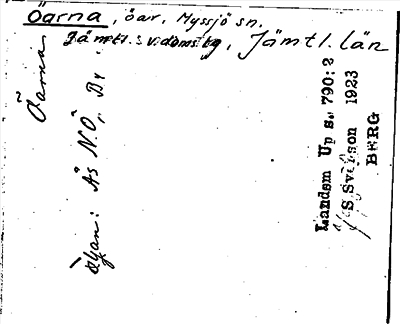 Öarna, öar, Myssjö sn.
Jämtl:s v. domsbg, Jämtl. län
Öarna
Ägan: Ås N.Ö, By
Landsm Up s. 790:2
S Svenson 1923
BERG